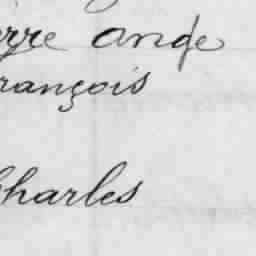 erre Ange
rançois
Charles